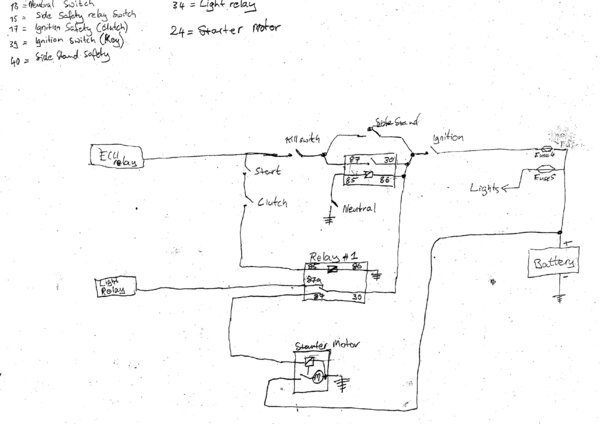 18 = Neutral Switch
15 = Side Safety relay Switch
17 = Ignition Safety (Clutch)
39 = Ignition Switch (Key)
40 = Side Stand Safety
34 = Light relay
24 = Starter Motor
Side Stand
Killswitch
Ignition
ECU relay
87 30
85 86
Fuse4
Fuse5
Lights
Start
Clutch
Neutral
Relay #1
85 86
87a
87 30
Light Relay
+
Battery
-
Starter Motor
M